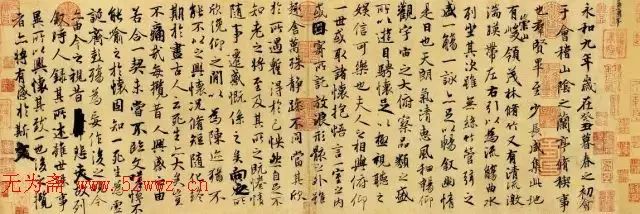 永和九年歲在癸丑暮春之初會
于會稽山陰之蘭亭脩稧事
也羣賢畢至少長咸集此地
有崇山峻領茂林脩竹又有清流激
湍暎帶左右引以為流觴曲水
列坐其次雖無絲竹管弦之
盛一觴一詠亦足以暢敘幽情
是日也天朗氣清惠風和暢仰
觀宇宙之大俯察品類之盛
所以遊目騁懷足以極視聽之
娛信可樂也夫人之相與俯仰
一世或取諸懷抱悟言一室之內
或因寄所託放浪形骸之外雖
趣舍萬殊靜躁不同當其欣
於所遇暫得於己怏然自足不
知老之將至及其所之既惓情
隨事遷感慨係之矣向之所
欣俛仰之閒以為陳迹猶不
能不以之興懷況脩短隨化終
期於盡古人云死生亦大矣豈
不痛哉每攬昔人興感之由
若合一契未嘗不臨文嗟悼不
能喻之於懷固知一死生為虛
誕齊彭殤為妄作後之視今
亦由今之視昔悲夫故列
敘時人錄其所述雖世殊事
異所以興懷其致一也後之攬
者亦將有感於斯文
无为斋
www.52wwz.cn